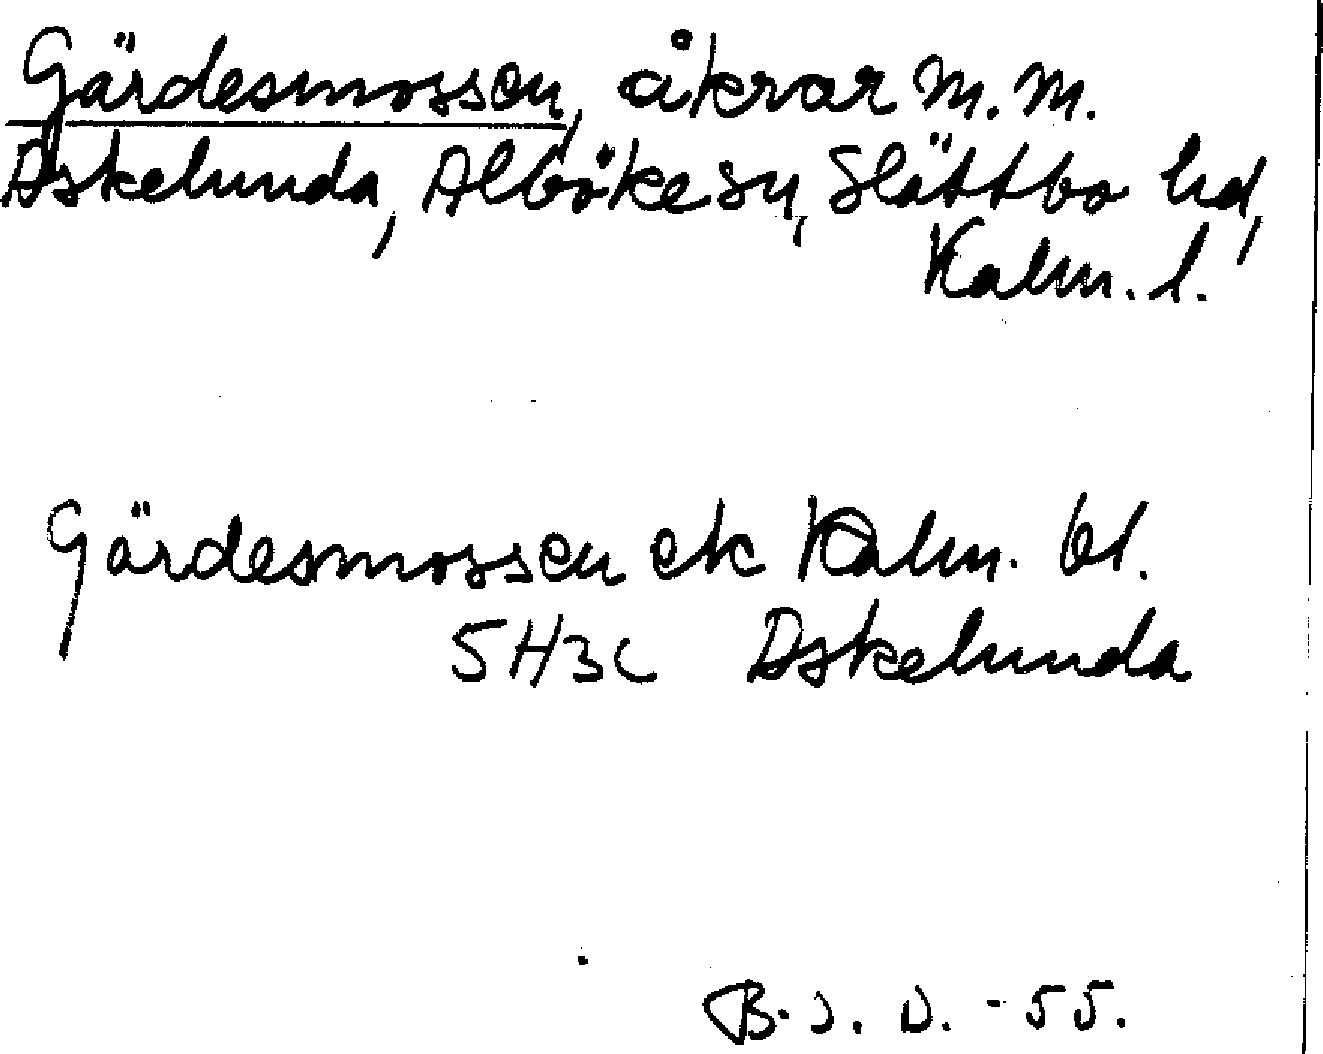 Gärdesmossen, åkrar m.m.
Äskelunda, Alböke sn, Slättbo hd,
Kalm. l.
Gärdesmossen ek Kalm. bl.
5H3c Äskelunda
B. J. D. -55.